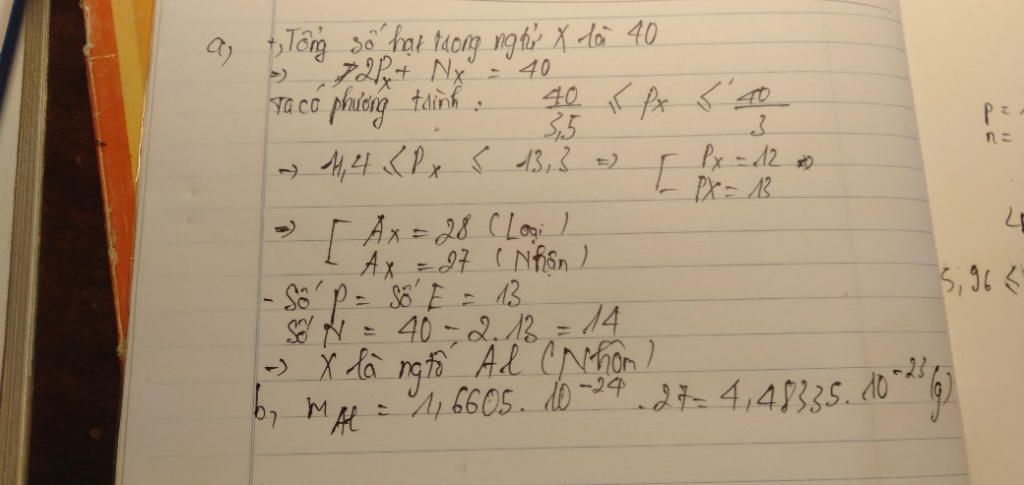 a, +, Tổng số hạt trong ngtử X là 40
=> 2Px + Nx = 40
Ta có phương trình: 40/3,5 ≤ Px ≤ 40/3
-> 11,4 ≤ Px ≤ 13,3 => [ Px = 12 =>
PX = 13
=> [ Ax = 28 (Loại)
Ax = 27 (Nhận)
- Số P = Số E = 13
Số N = 40 - 2.13 = 14
-> X là ngtố Al (Nhôm)
b, mAl = 1,6605. 10^-24 . 27 = 4,48335. 10^-23 (g)
p =
n =
5,96 ≤